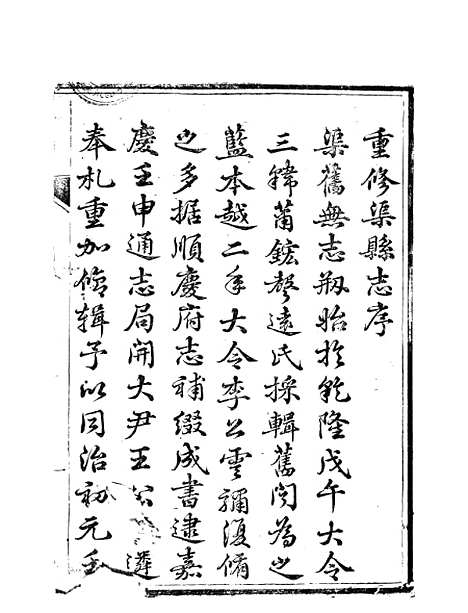 重修渠縣志序
渠舊無志刱始於乾隆戊午大令
三韓蕭鋐聲遠氏採輯舊聞為之
藍本越二年大令李公雲彌復脩
之多据順慶府志補綴成書逮嘉
慶壬申通志局開大尹王公遴
奉札重加脩輯予以同治初元壬